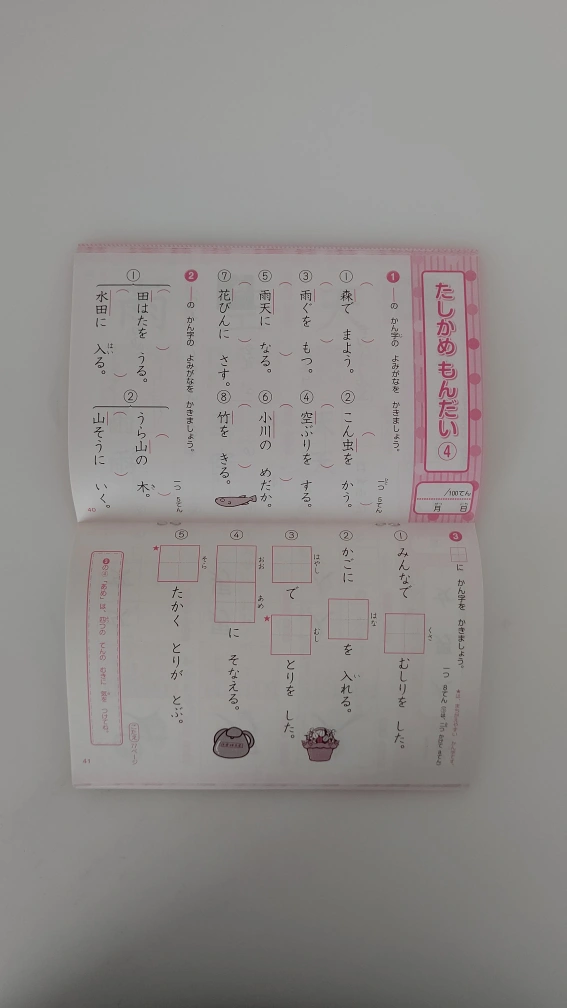 たしかめ もんだい ④
/100てん
月 日
❶ ――の かん字の よみがなを かきましょう。
一つ 5てん
① 森で まよう。
② こん虫を かう。
③ 雨ぐを もつ。
④ 空ぶりを する。
⑤ 雨天に なる。
⑥ 小川の めだか。
⑦ 花びんに さす。
⑧ 竹を きる。
❷ ――の かん字の よみがなを かきましょう。
一つ 5てん
① 田はたを うる。
水田に 入る。
はい
② うら山の 木。
き
山そうに いく。
40
❸ □に かん字を かきましょう。
一つ 8てん
① みんなで
くさ
むしりを した。
② かごに
はな
を 入れる。
い
③ はやし
で
むし
とりを した。
④ おお
あめ
に そなえる。
⑤ そら
たかく とりが とぶ。
❸の④「あめ」は、四つの てんの むきに 気を つけてね。
41